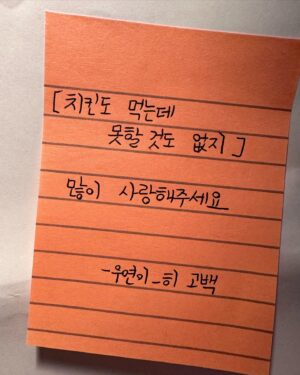 [ 치킨도 먹는데
못할 것도 없지 ]
많이 사랑해주세요
-우연이_히 고백